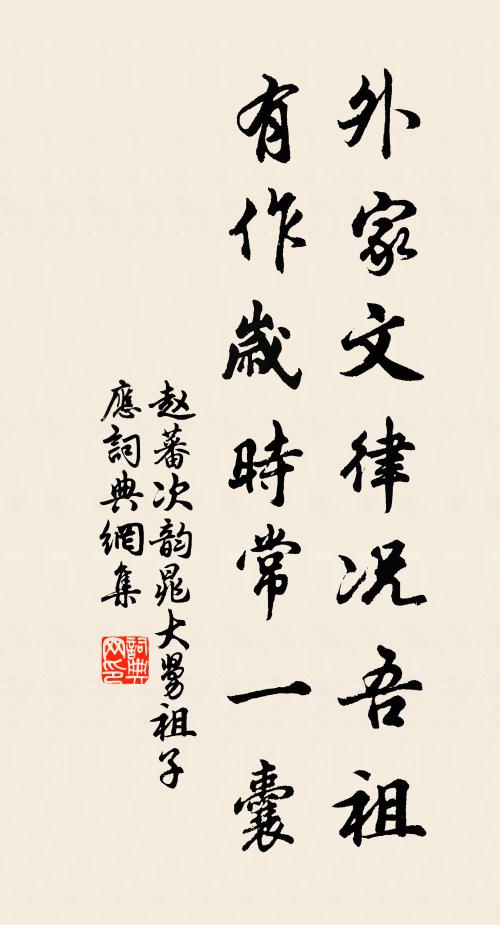 外家文律况吾祖
有作歲時常一囊
赵蕃次韵晁大舅祖子
應詞典網集
詞典
网印